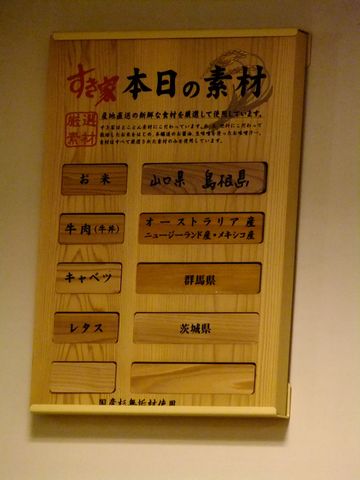 すき家 本日の素材
厳選素材
産地直送の新鮮な食材を厳選して使用しています。
お米 山口県 島根県
牛肉(牛丼) オーストラリア産 ニュージーランド産・メキシコ産
キャベツ 群馬県
レタス 茨城県
国産杉無垢材使用